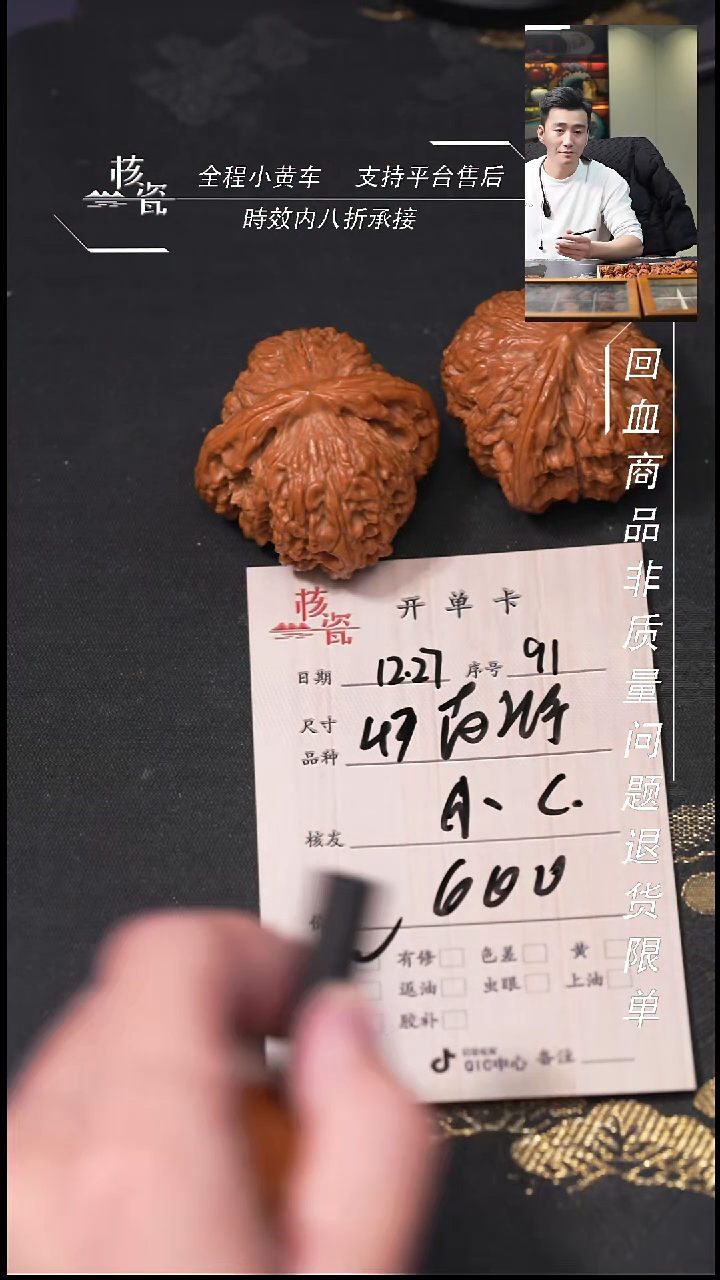 核瓷
全程小黄车 支持平台售后
時效内八折承接
回血商品非质量问题退货限单
核瓷 开单卡
日期 12.27 序号 91
尺寸
品种 47
核友 A、C.
600
有修 色差 黄
返油 虫眼 上油
胶补
QIC中心 备注